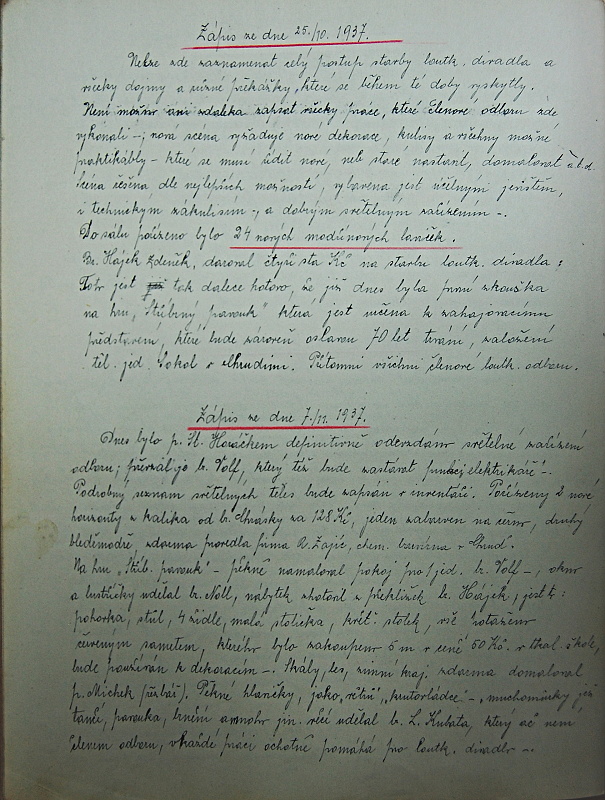 Zápis ze dne 25./10. 1937.
Nelze zde zaznamenat celý postup stavby loutk. divadla a
všecky dojmy a různé překážky, které se během té doby vyskytly.
Není možno ani zdaleka zapsat všecky práce, které členové odboru zde
vykonali -, nová scéna vyžaduje nové dekorace, kulisy a všechny možné
praktikábly - které se musí řídit nové, neb staré nastavit, domalovat a.t.d.
Scéna řešena, dle nejlepších možností, vybavena jest účelným jevištěm,
i technickým zákulisím -, a dobrým světelným zařízením -.
Do sálu pořízeno bylo 24 nových modřínových laviček.
Br. Hájek Zdeněk, daroval čtyři sta Kč na stavbu loutk. divadla:
Toto jest již tak dalece hotovo, že již dnes byla první zkouška
na hru, "Stříbrný pavouk" která jest určena k zahajovacímu
představení, které bude zároveň oslavou 70 let trvání, založení
těl. jed. Sokol v Chrudimi. Přítomni všichni členové loutk. odboru.
Zápis ze dne 7./11. 1937.
Dnes bylo p. St. Horáčkem definitivně odevzdáno světelné zařízení
odboru; převzal je br. Volf, který též bude zastávat funkci elektrikáře -.
Podrobný seznam světelných těles bude zapsán v inventáři. Pořízeny 2 nové
horizonty z kalika od br. za 128 Kč, jeden zabarven na černo, druhý
bleděmodře, zdarma provedla firma R. Zajíc, chem. barvírna v Chrud.
Na hru "Stříb. pavouk" - pěkně namaloval pokoj pro I jed. br. Volf -, okno
a lustříčky udělal br. Noll, nábytek zhotovil z překližek br. Hájek, jest to:
pohovka, stůl, 4 židle, malá stolička, květ. stolek, vše potaženo
červeným sametem, kterého bylo zakoupeno 5 m v ceně 50 Kč. v tkal. škole,
bude používán k dekoracím -. Skály, les, zimní kraj. zdarma domaloval
p. Míchek (řezbář). Pěkné hlavičky, jako, větrů, "krutovládce" -, muchomůrky jež
tančí, pavouka, brnění a mnoho jin. věcí udělal br. L. Kubata, který ač není
členem odboru, v každé práci ochotně pomáhá pro loutk. divadlo -.